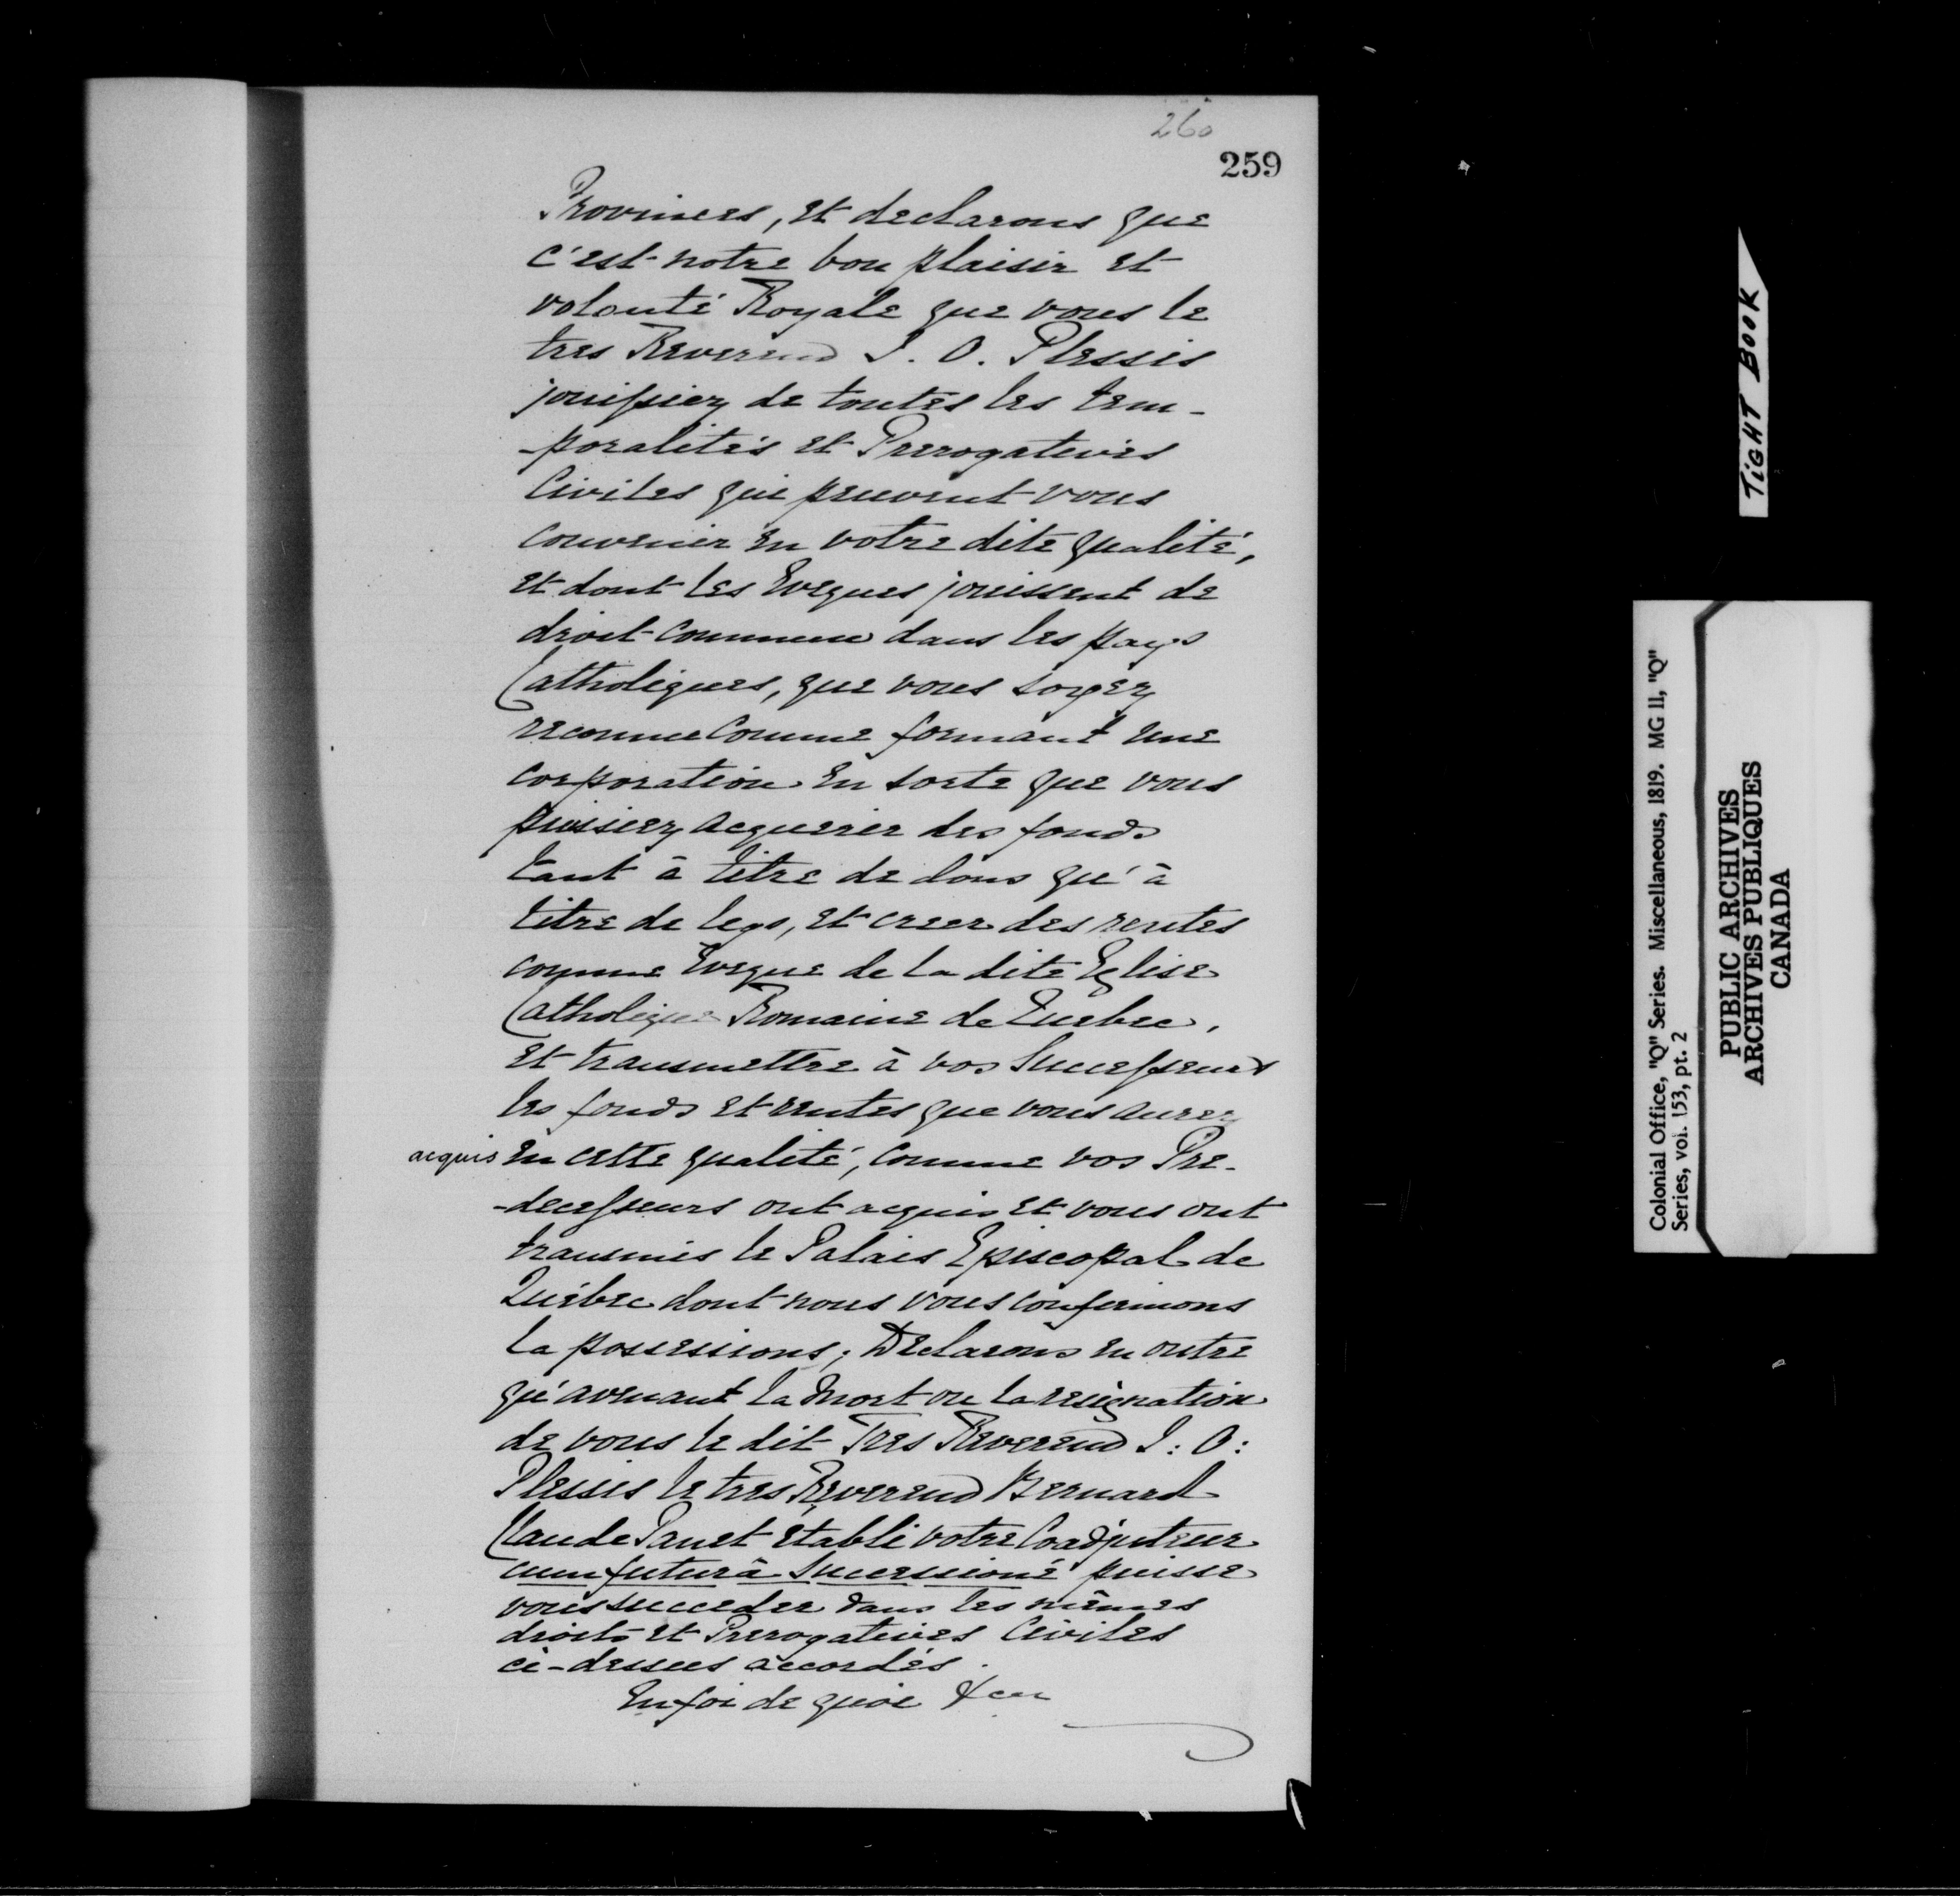 260
259
Provinces, et declarons que
c'est notre bon plaisir et
volonté Royale que vous le
tres Reverend J. O. Plessis
jouissiez de toutes les tem-
-poralités et Prerogatives
Civiles qui peuvent vous
convenir en votre dite qualité,
et dont les Eveques jouissent de
droit commun dans les pays
Catholiques, que vous soyez
reconnu comme formant une
corporation en sorte que vous
puissiez acquerir des fonds
tant à titre de dons qu'à
titre de legs, et creer des rentes
comme Eveque de la dite Eglise
Catholique Romaine de Quebec,
et transmettre à vos Successeurs
les fonds et rentes que vous aurez
acquis en cette qualité, comme vos Pre-
-decesseurs ont acquis et vous ont
transmis le Palais Episcopal de
Québec dont nous vous confirmons
la possessions; Declarons en outre
qu'avenant la mort ou la resignation
de vous le dit Tres Reverend J: O:
Plessis le tres Reverend Bernard
Claude Panet établi votre Coadjuteur
cum futurâ Successioné puisse
vous succeder dans les mêmes
droits et Prerogatives Civiles
ci-dessus accordés.
En foi de quoi &c
TIGHT BOOK
Colonial Office, "Q" Series. Miscellaneous, 1819. MG 11, "Q"
Series, vol. 153, pt. 2
PUBLIC ARCHIVES
ARCHIVES PUBLIQUES
CANADA